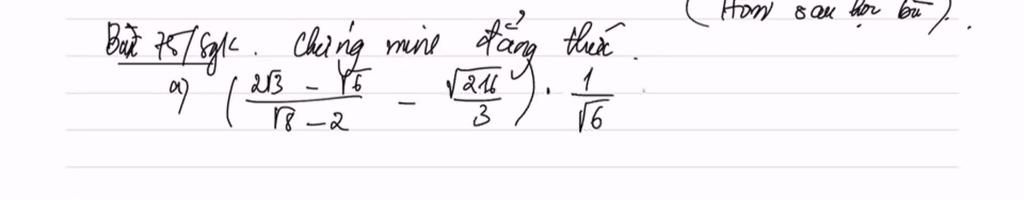 (Hôm sau học bù).
Bài 75/Sgk. Chứng minh đẳng thức.
a) (2√3 - √6 / √8 - 2 - √216 / 3) · 1 / √6